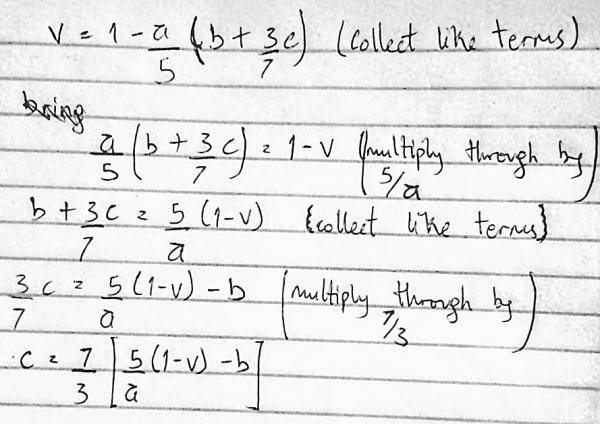 V = 1 - a/5 (b + 3c/7) (Collect like terms)
a/5 (b + 3/7 c) = 1 - v (multiply through by 5/a)
b + 3c/7 = 5/a (1-v) {collect like terms}
3/7 c = 5/a (1-v) - b (multiply through by 7/3)
c = 7/3 [5/a (1-v) - b]